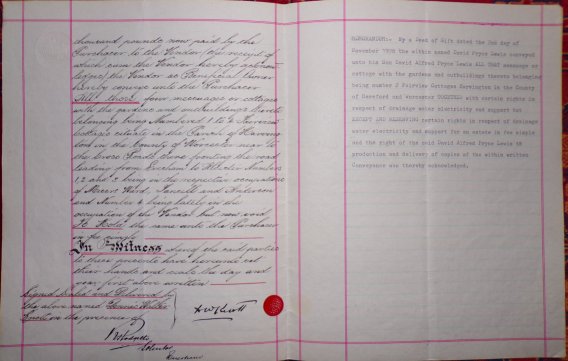 thousand pounds now paid by the
Purchaser to the Vendor (the receipt of
which sum the Vendor hereby acknow-
ledges) the Vendor as Beneficial Owner
hereby conveys unto the Purchaser
All those four messuages or cottages
with the gardens and outbuildings thereto
belonging being Numbered 1 to 4 Fairview
Cottages situate in the Parish of Harving-
ton in the County of Worcester near to
the Cross Roads there fronting the road
leading from Evesham to Alcester Numbers
1, 2 and 3 being in the respective occupations
of Messrs Ward, and Anderson
and Number 4 being lately in the
occupation of the Vendor but now void
To Hold the same unto the Purchaser
in fee simple
In Witness whereof the said parties
to these presents have hereunto set
their hands and seals the day and
year first above written
Signed Sealed and Delivered by
the above named Walter
in the presence of
MEMORANDUM:- By a Deed of Gift dated the 2nd day of
November 1978 the within named David Pryce Lewis conveyed
unto his Son David Alfred Pryce Lewis ALL THAT messuage or
cottage with the gardens and outbuildings thereto belonging
being number 2 Fairview Cottages Harvington in the County
of Hereford and Worcester TOGETHER with certain rights in
respect of drainage water electricity and support BUT
EXCEPT AND RESERVING certain rights in respect of drainage
water electricity and support for an estate in fee simple
and the right of the said David Alfred Pryce Lewis to
production and delivery of copies of the within written
Conveyance was thereby acknowledged.